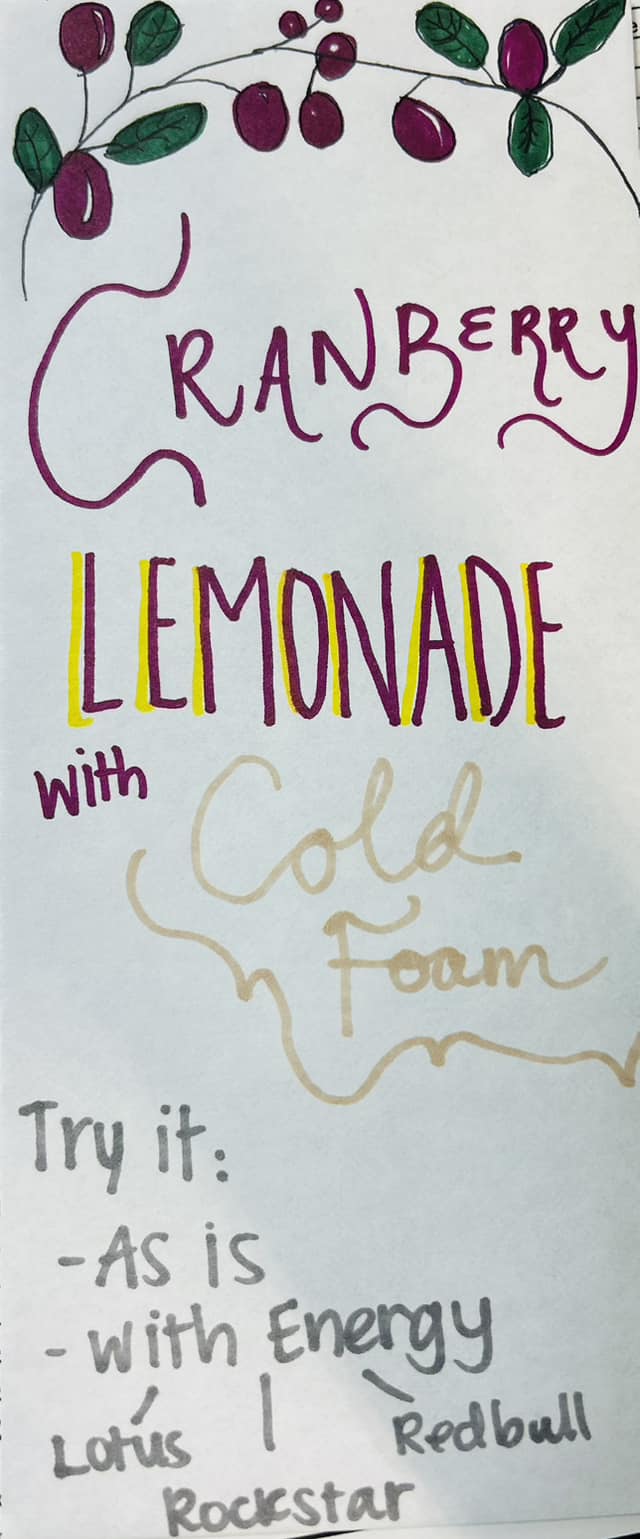 CRANBERRY
LEMONADE
with Cold
Foam
Try it:
- As is
- With Energy
Lotus Redbull
Rockstar